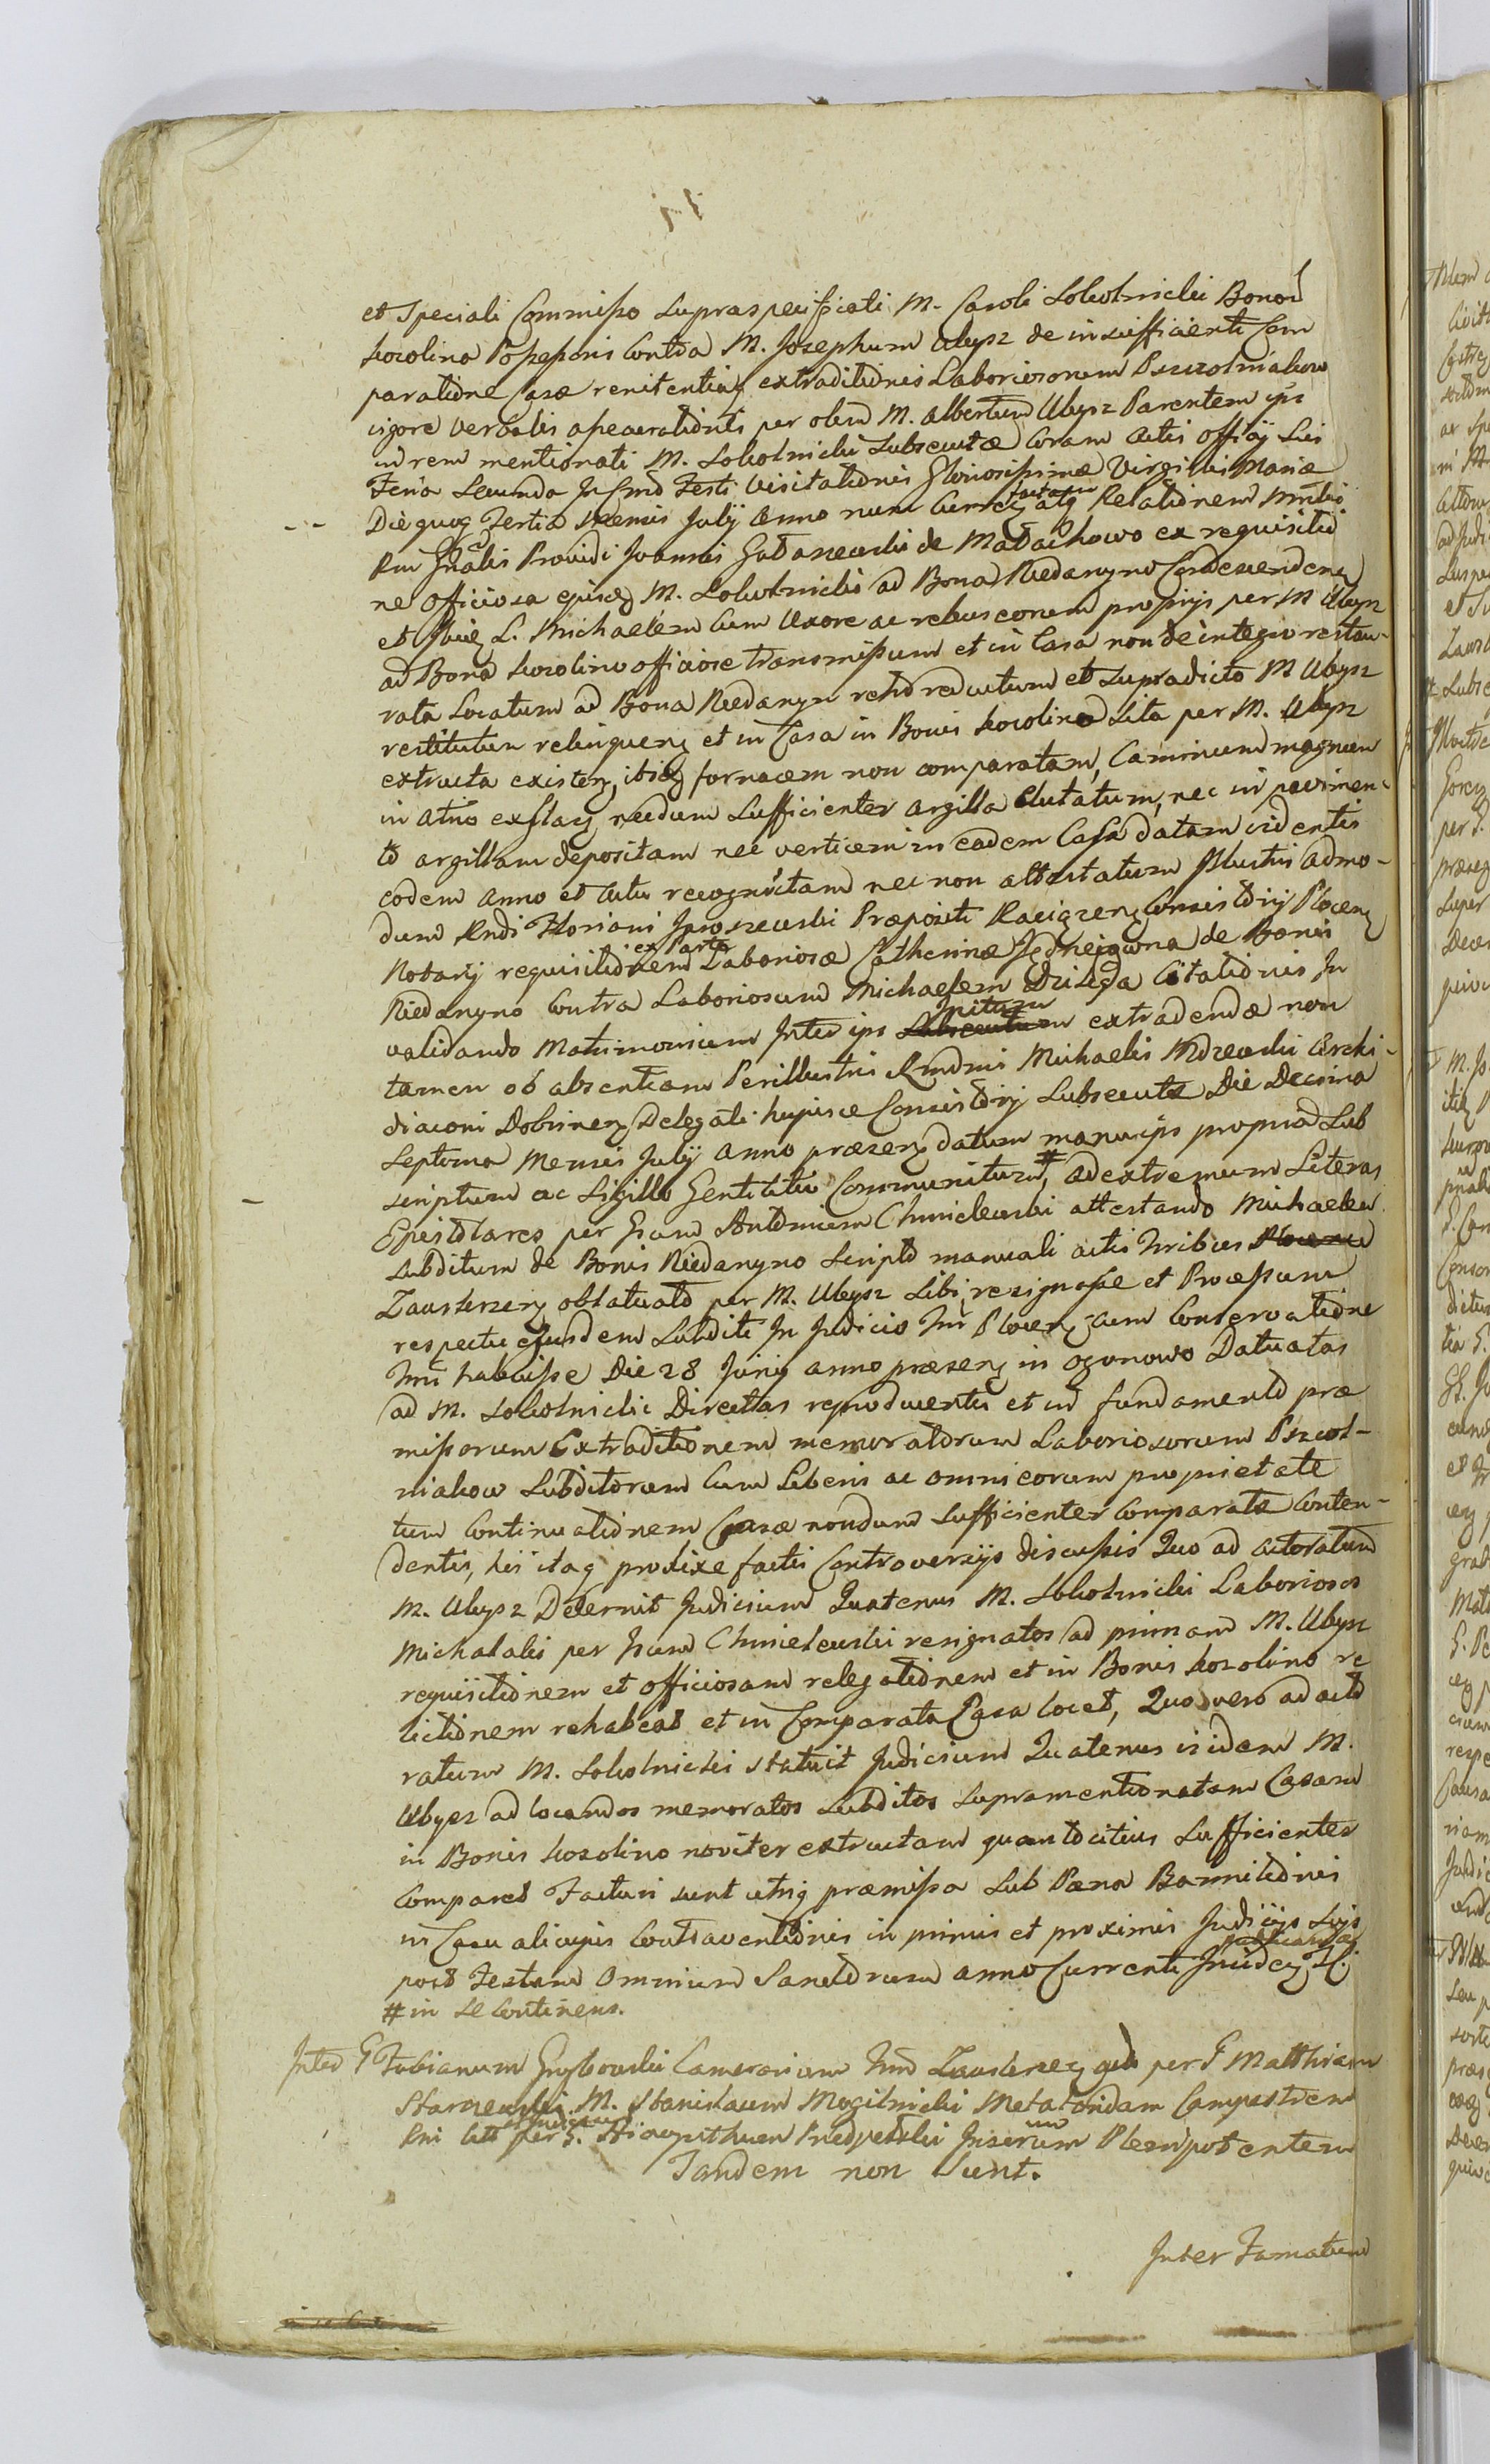 et Speciali Commisso supraspecificati M. Caroli Sokolnicki Bonor
Kozolino Possessoris Contra M. Josephum Ubysz de insufficienti Com
paratione Casæ renitentiaq extraditionis Laboriosorum Pszczolniakow
vigore verbalis asseverationis per olim M. Albertum Ubysz Parentem ips
in rem mentionati M. Sokolnicki Subsecutæ Coram Actis Officij Sui
Feria Secunda In Crno Festi Visitationis Gloriosissimæ Virginis Mariæ
Die quoq Tertia Mensis Julij Anno nunc Curren factam atq Relationem Mnlis
Rni Gnalis Providi Joannis Gołaszewski de Małachowo ex requisitio
ne officiosa ejusdq M. Sokolnicki ad Bona Niedanyno Condescendenq
et Ibiq L. Michaelem Cum Uxore ac rebus eorum proprijs per M Ubysz
ad Bona Kozolino officiose transmissum et in Casa non de integro restau-
rata Locatum ad Bona Niedanyn retro reductum et Supradicto M Ubysz
restitutum relinquenq et in Casa in Bonis Kozolino Sita per M. Ubysz
extructa existenq, ibiq fornacem non comparatam, Caminum magnum
in atrio exstanq needum Sufficienter argilla Clutatum, nec in pavimen-
to argillam depositam nec verticem in eadem Casa datam videntis
eodem Anno et Actu recognitam nec non attestatum Illustris admo-
dum Rndi Floriani Jaroszewski Præpositi Raciązenq Consistorij Plocenq
Notarij requisitionem ex Parte Laboriosæ Catherinæ Jędrejowna de Bonis
Niedanyno Contra Laboriosum Michaelem Citationis In
validando Matrimonium Inter ips Initum extradendæ non
tamen ob absentiam Perillustris Rndmi Michaelis Archi-
diaconi Dobrinenq Delegati hujusce Consistorij Subsecuta Die Decima
Septima Mensis Julij Anno præsenq datum manu ejs propria Sub
scriptum ac Sigillo Gentilitio Communitum #, ad extremum Literas
Epistolares per Gsum Antonium Chmielewski attestando Michaelem
Subditum de Bonis Niedanyno Scripto manuali Actis Trribus
Zawskrzenq oblatuato per M. Ubysz Sibi resignasse et Processum
respectu ejusdem Subditi In Judicio Trri Plocenq cum Conservatione
Trri habuisse Die 28 Junij anno præsenq in Ogonowo Datuatas
ad M. Sokolnicki Directas reproducentis et in fundamento præ
missorum Extraditionem memoratorum Laboriosorum Pszczol-
niakow Subditorum Cum Liberis ac omni eorum proprietate
tum Continuationem Casæ nondum Sufficienter Comparatæ Conten-
dentis, his itaq prolixe factis Controversijs discussis Quo ad Actoratum
M. Ubysz Decernit Judicium Quatenus M. Sokolnicki Laboriosos
Michalakis per Gsum Chmielewski resignatos ad primam M. Ubysz
requisitionem et officiosam relegationem et in Bonis Kozolino re
lictionem rehabeat et in Comparata Casa locet, Quo vero ad acto
ratum M. Sokolnicki Statuit Judicium Quatenus isidem M.
Ubysz ad locandos memoratos Subditos Supramentionatam Casam
in Bonis Kozolino noviter extructam quantocitius Sufficienter
Comparet Facturi sunt utriq præmissa Sub Pæna Bannitionis
in Casu alicujus Contraventionis in primis et proximis Judicijs Suis
post Festum Omnium Sanctorum anno Currenti Inciden publicanda
# in se Continens.
Inter G Fabianum Grzybowski Camerarium Trrm Zawskrzenq per G Matthiam
M. Stanislaum Mogilnicki Metatoridam Campestrem
Rni per G. Hiacynthum Plenipotentem
Tandem non Sunt.
Inter Famatum